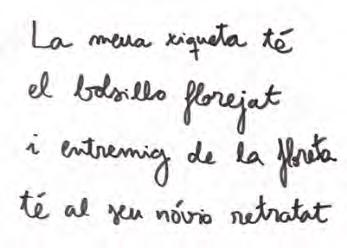 La meua xiqueta té
el bolsillo florejat
i entremig de la floreta
té al seu nóvio retratat